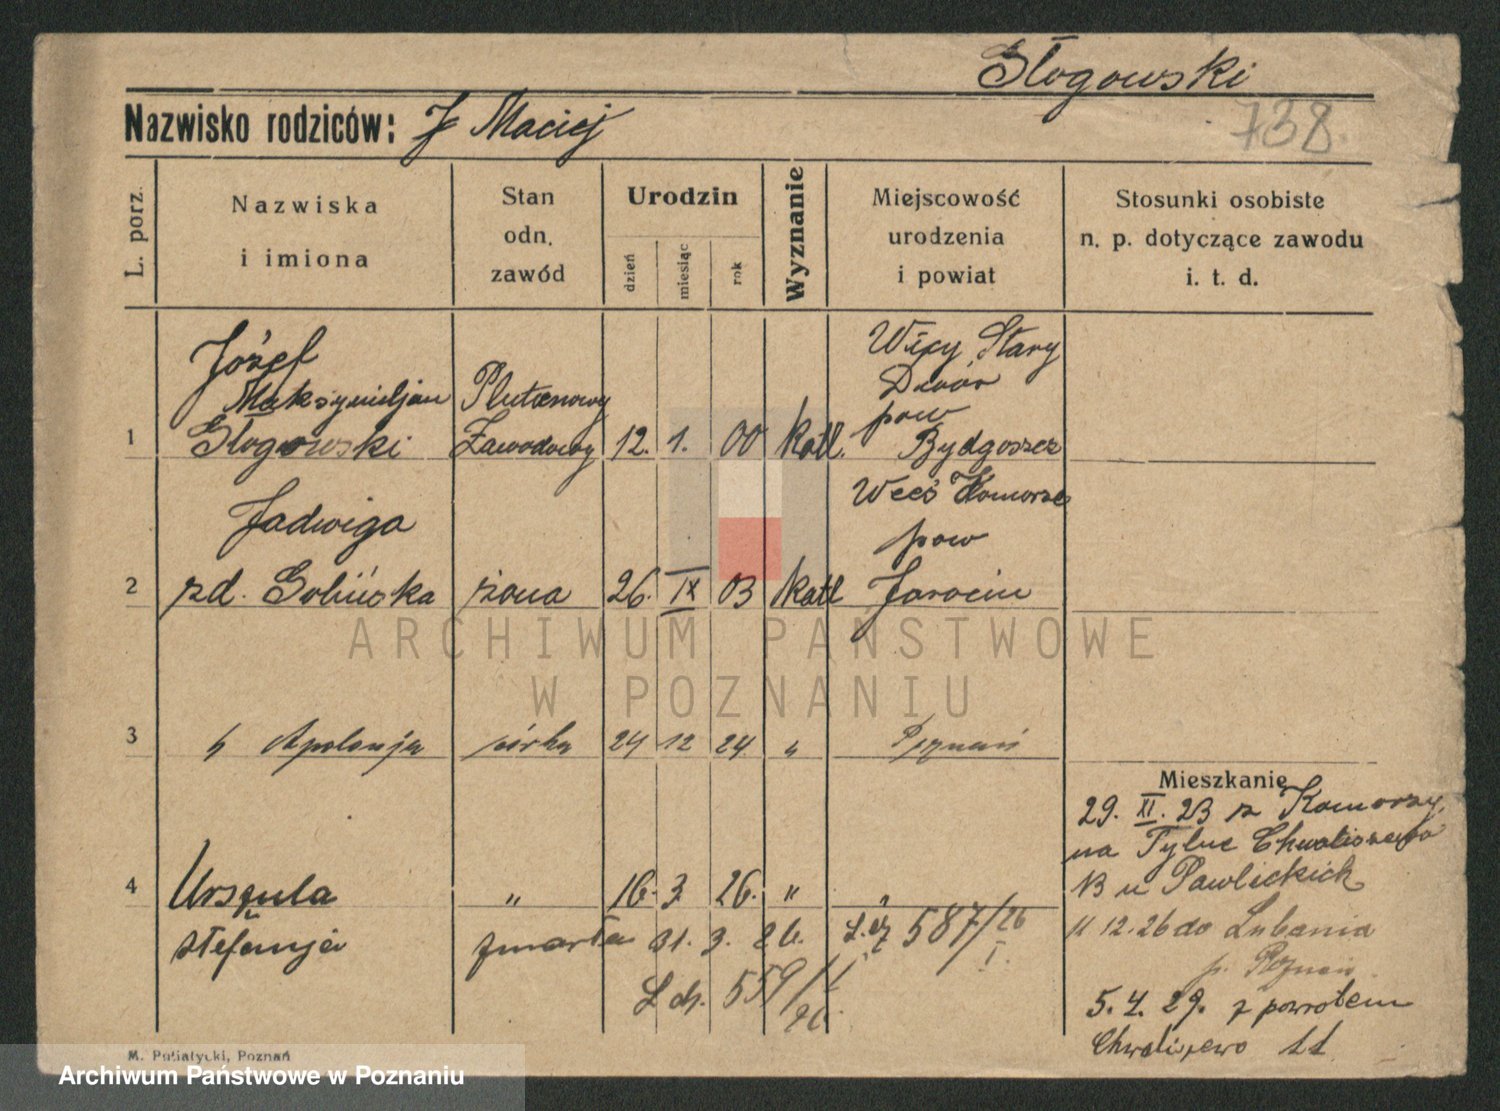 Głogowski
738.
Nazwisko rodziców: J Maciej
L. porz.
Nazwiska
i imiona
Stan
odn.
zawód
Urodzin
dzień
miesiąc
rok
Wyznanie
Miejscowość
urodzenia
i powiat
Stosunki osobiste
n. p. dotyczące zawodu
i. t. d.
1
Józef
Maksymiljan
Głogowski
Plutonowy
Zawodowy
12. 1. 00
katl.
Stary
Dwór
pow
Bydgoszcz
2
Jadwiga
zd.
żona
26. IX 03
katl
Wieś Komorze
pow
Jarocin
3
Apolonja
córka
24 12 24
"
Poznań
Mieszkanie
29. XI. 23 z Komorzy,
na Tylne Chwaliszewo
13 u Pawlickich
4
Urszula
"
16. 3. 26.
"
"
stefanja
zmarła 31. 3. 26.
L. dz 587/26
I.
L dz. 559/I
26.
11 12.26 do Lubania
p. Poznań
5. 4. 29. z powrotem
Chwaliszewo 11
M. Putiatycki, Poznań
ARCHIWUM PAŃSTWOWE
W POZNANIU
Archiwum Państwowe w Poznaniu